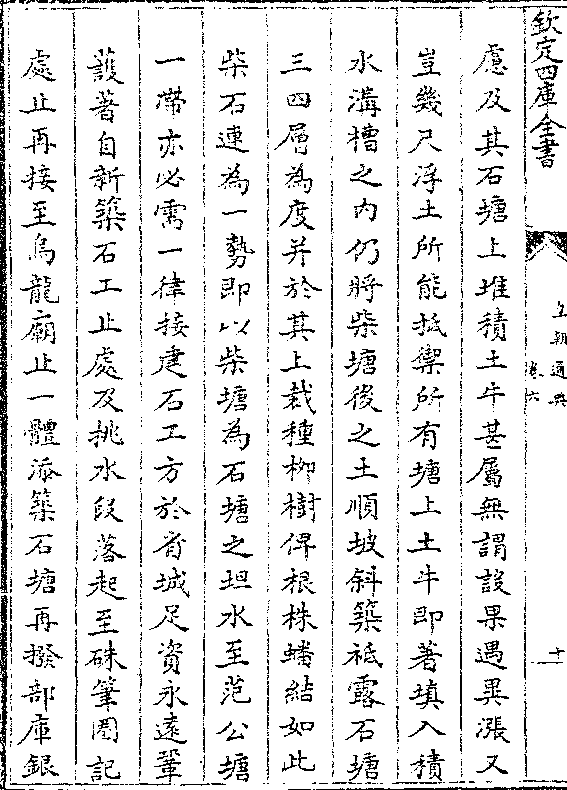 欽定四庫全書
皇朝通典
卷六
十一
慮及其石塘上堆積土牛甚屬無謂設果遇異漲又
豈幾尺浮土所能抵禦所有塘上土牛即著填入積
水溝槽之内仍將柴塘後之土順坡斜築祗露石塘
三四層為度并於其上栽種栁樹俾根株蟠結如此
柴石連為一勢即以柴塘為石塘之坦水至范公塘
一帶亦必需一律接建石工方於省城足資永遠鞏
䕶著自新築石工止處及挑水段落起至硃筆圈記
處止再接至烏龍廟止一體添築石塘再撥部庫銀